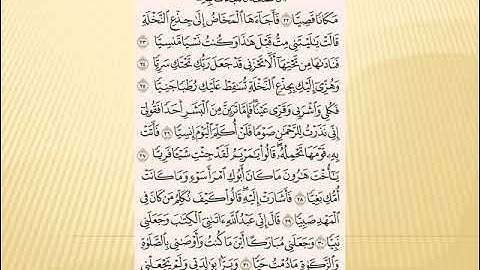 مَكَانًا قَصِيًّا ٢٢ فَأَجَآءَهَا ٱلْمَخَاضُ إِلَىٰ جِذْعِ ٱلنَّخْلَةِ
قَالَتْ يَٰلَيْتَنِى مِتُّ قَبْلَ هَٰذَا وَكُنتُ نَسْيًا مَّنسِيًّا ٢٣
فَنَادَىٰهَا مِن تَحْتِهَآ أَلَّا تَحْزَنِى قَدْ جَعَلَ رَبُّكِ تَحْتَكِ سَرِيًّا ٢٤
وَهُزِّىٓ إِلَيْكِ بِجِذْعِ ٱلنَّخْلَةِ تُسَٰقِطْ عَلَيْكِ رُطَبًا جَنِيًّا ٢٥
فَكُلِى وَٱشْرَبِى وَقَرِّى عَيْنًا فَإِمَّا تَرَيِنَّ مِنَ ٱلْبَشَرِ أَحَدًا فَقُولِىٓ
إِنِّى نَذَرْتُ لِلرَّحْمَٰنِ صَوْمًا فَلَنْ أُكَلِّمَ ٱلْيَوْمَ إِنسِيًّا ٢٦ فَأَتَتْ
بِهِۦ قَوْمَهَا تَحْمِلُهُۥ قَالُوا۟ يَٰمَرْيَمُ لَقَدْ جِئْتِ شَيْـًٔا فَرِيًّا ٢٧
يَٰٓأُخْتَ هَٰرُونَ مَا كَانَ أَبُوكِ ٱمْرَأَ سَوْءٍ وَمَا كَانَتْ
أُمُّكِ بَغِيًّا ٢٨ فَأَشَارَتْ إِلَيْهِ قَالُوا۟ كَيْفَ نُكَلِّمُ مَن كَانَ فِى
ٱلْمَهْدِ صَبِيًّا ٢٩ قَالَ إِنِّى عَبْدُ ٱللَّهِ ءَاتَىٰنِىَ ٱلْكِتَٰبَ وَجَعَلَنِى
نَبِيًّا ٣٠ وَجَعَلَنِى مُبَارَكًا أَيْنَ مَا كُنتُ وَأَوْصَٰنِى بِٱلصَّلَوٰةِ
وَٱلزَّكَوٰةِ مَا دُمْتُ حَيًّا ٣١ وَبَرًّۢا بِوَٰلِدَتِى وَلَمْ يَجْعَلْنِى